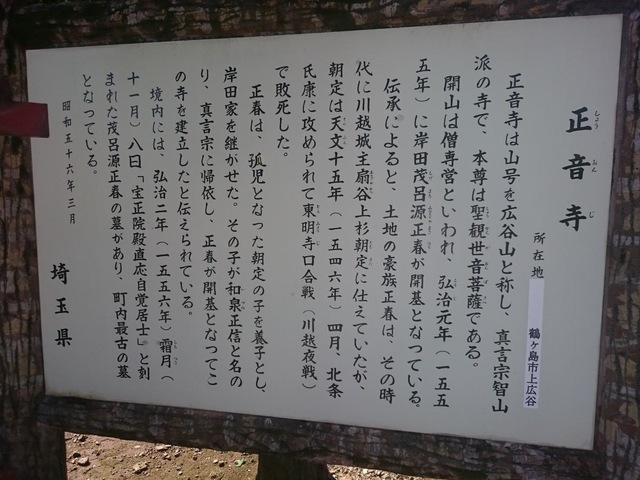 正音寺
しょうおんじ
所在地 鶴ヶ島市上広谷
正音寺は山号を広谷山と称し、真言宗智山
派の寺で、本尊は聖観世音菩薩である。
開山は僧専営といわれ、弘治元年（一五五
五年）に岸田茂呂源正春が開基となっている。
伝承によると、土地の豪族正春は、その時
代に川越城主扇谷上杉朝定に仕えていたが、
朝定は天文十五年（一五四六年）四月、北条
氏康に攻められて東明寺口合戦（川越夜戦）
で敗死した。
正春は、孤児となった朝定の子を養子とし、
岸田家を継がせた。その子が和泉正信と名の
り、真言宗に帰依し、正春が開基となってこ
の寺を建立したと伝えられている。
境内には、弘治二年（一五五六年）霜月（
十一月）八日「宝正院殿直応自覚居士」と刻
まれた茂呂源正春の墓があり、町内最古の墓
となっている。
昭和五十六年三月
埼玉県